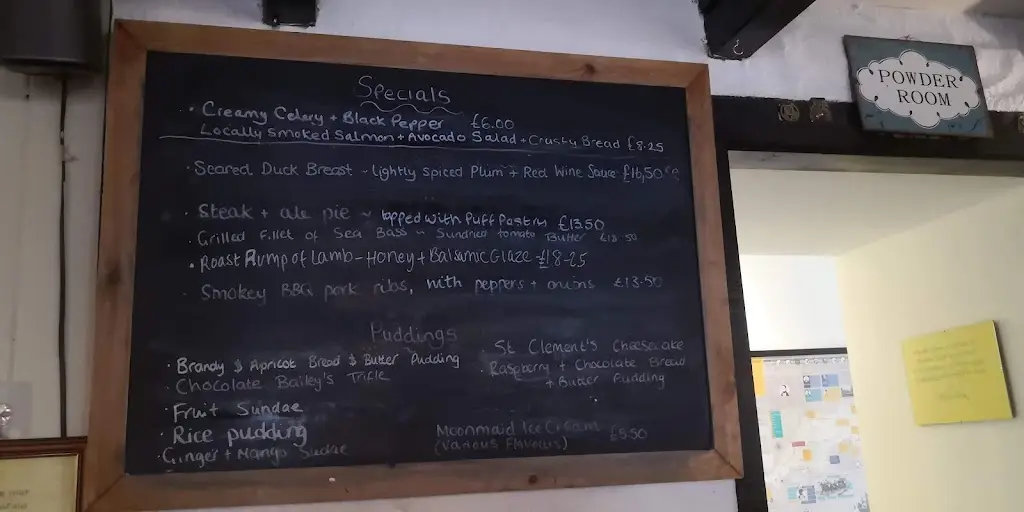 Specials
· Creamy Celery + Black Pepper £6.00
Locally Smoked Salmon + Avocado Salad + Crusty Bread £8.25
· Seared Duck Breast ~ lightly spiced Plum + Red Wine Sauce £16,50
· Steak + ale pie ~ topped with Puff Pastry £13.50
· Grilled fillet of Sea Bass ~ Sundried tomato Butter
· Roast Rump of Lamb - Honey + Balsamic Glaze £18-25
· Smokey BBQ pork ribs, with peppers + onions £13-50
Puddings
· Brandy & Apricot Bread & Butter Pudding
· Chocolate Bailey's Trifle
· Fruit Sundae
· Rice pudding
· Ginger + Mango Sudae
St Clement's Cheesecake
· Raspberry + Chocolate Bread
+ Butter Pudding
Moonmaid Ice Cream
(Various Flavours) £5.50
POWDER
ROOM